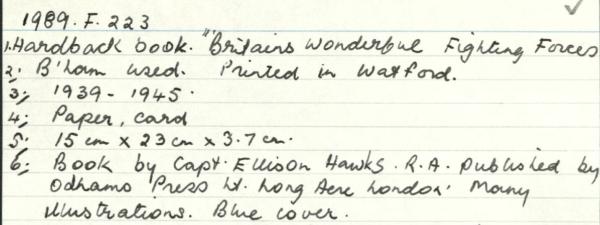 1989. F. 223
1. Hardback book. "Britains Wonderful Fighting Forces
2; B'ham used. Printed in Watford.
3; 1939 - 1945.
4; Paper, card
5; 15 cm x 23 cm x 3.7 cm.
6; Book by Capt. Ellison Hawks. R.A. published by
Odhams Press Lt. Long Acre London. Many
illustrations. Blue cover.